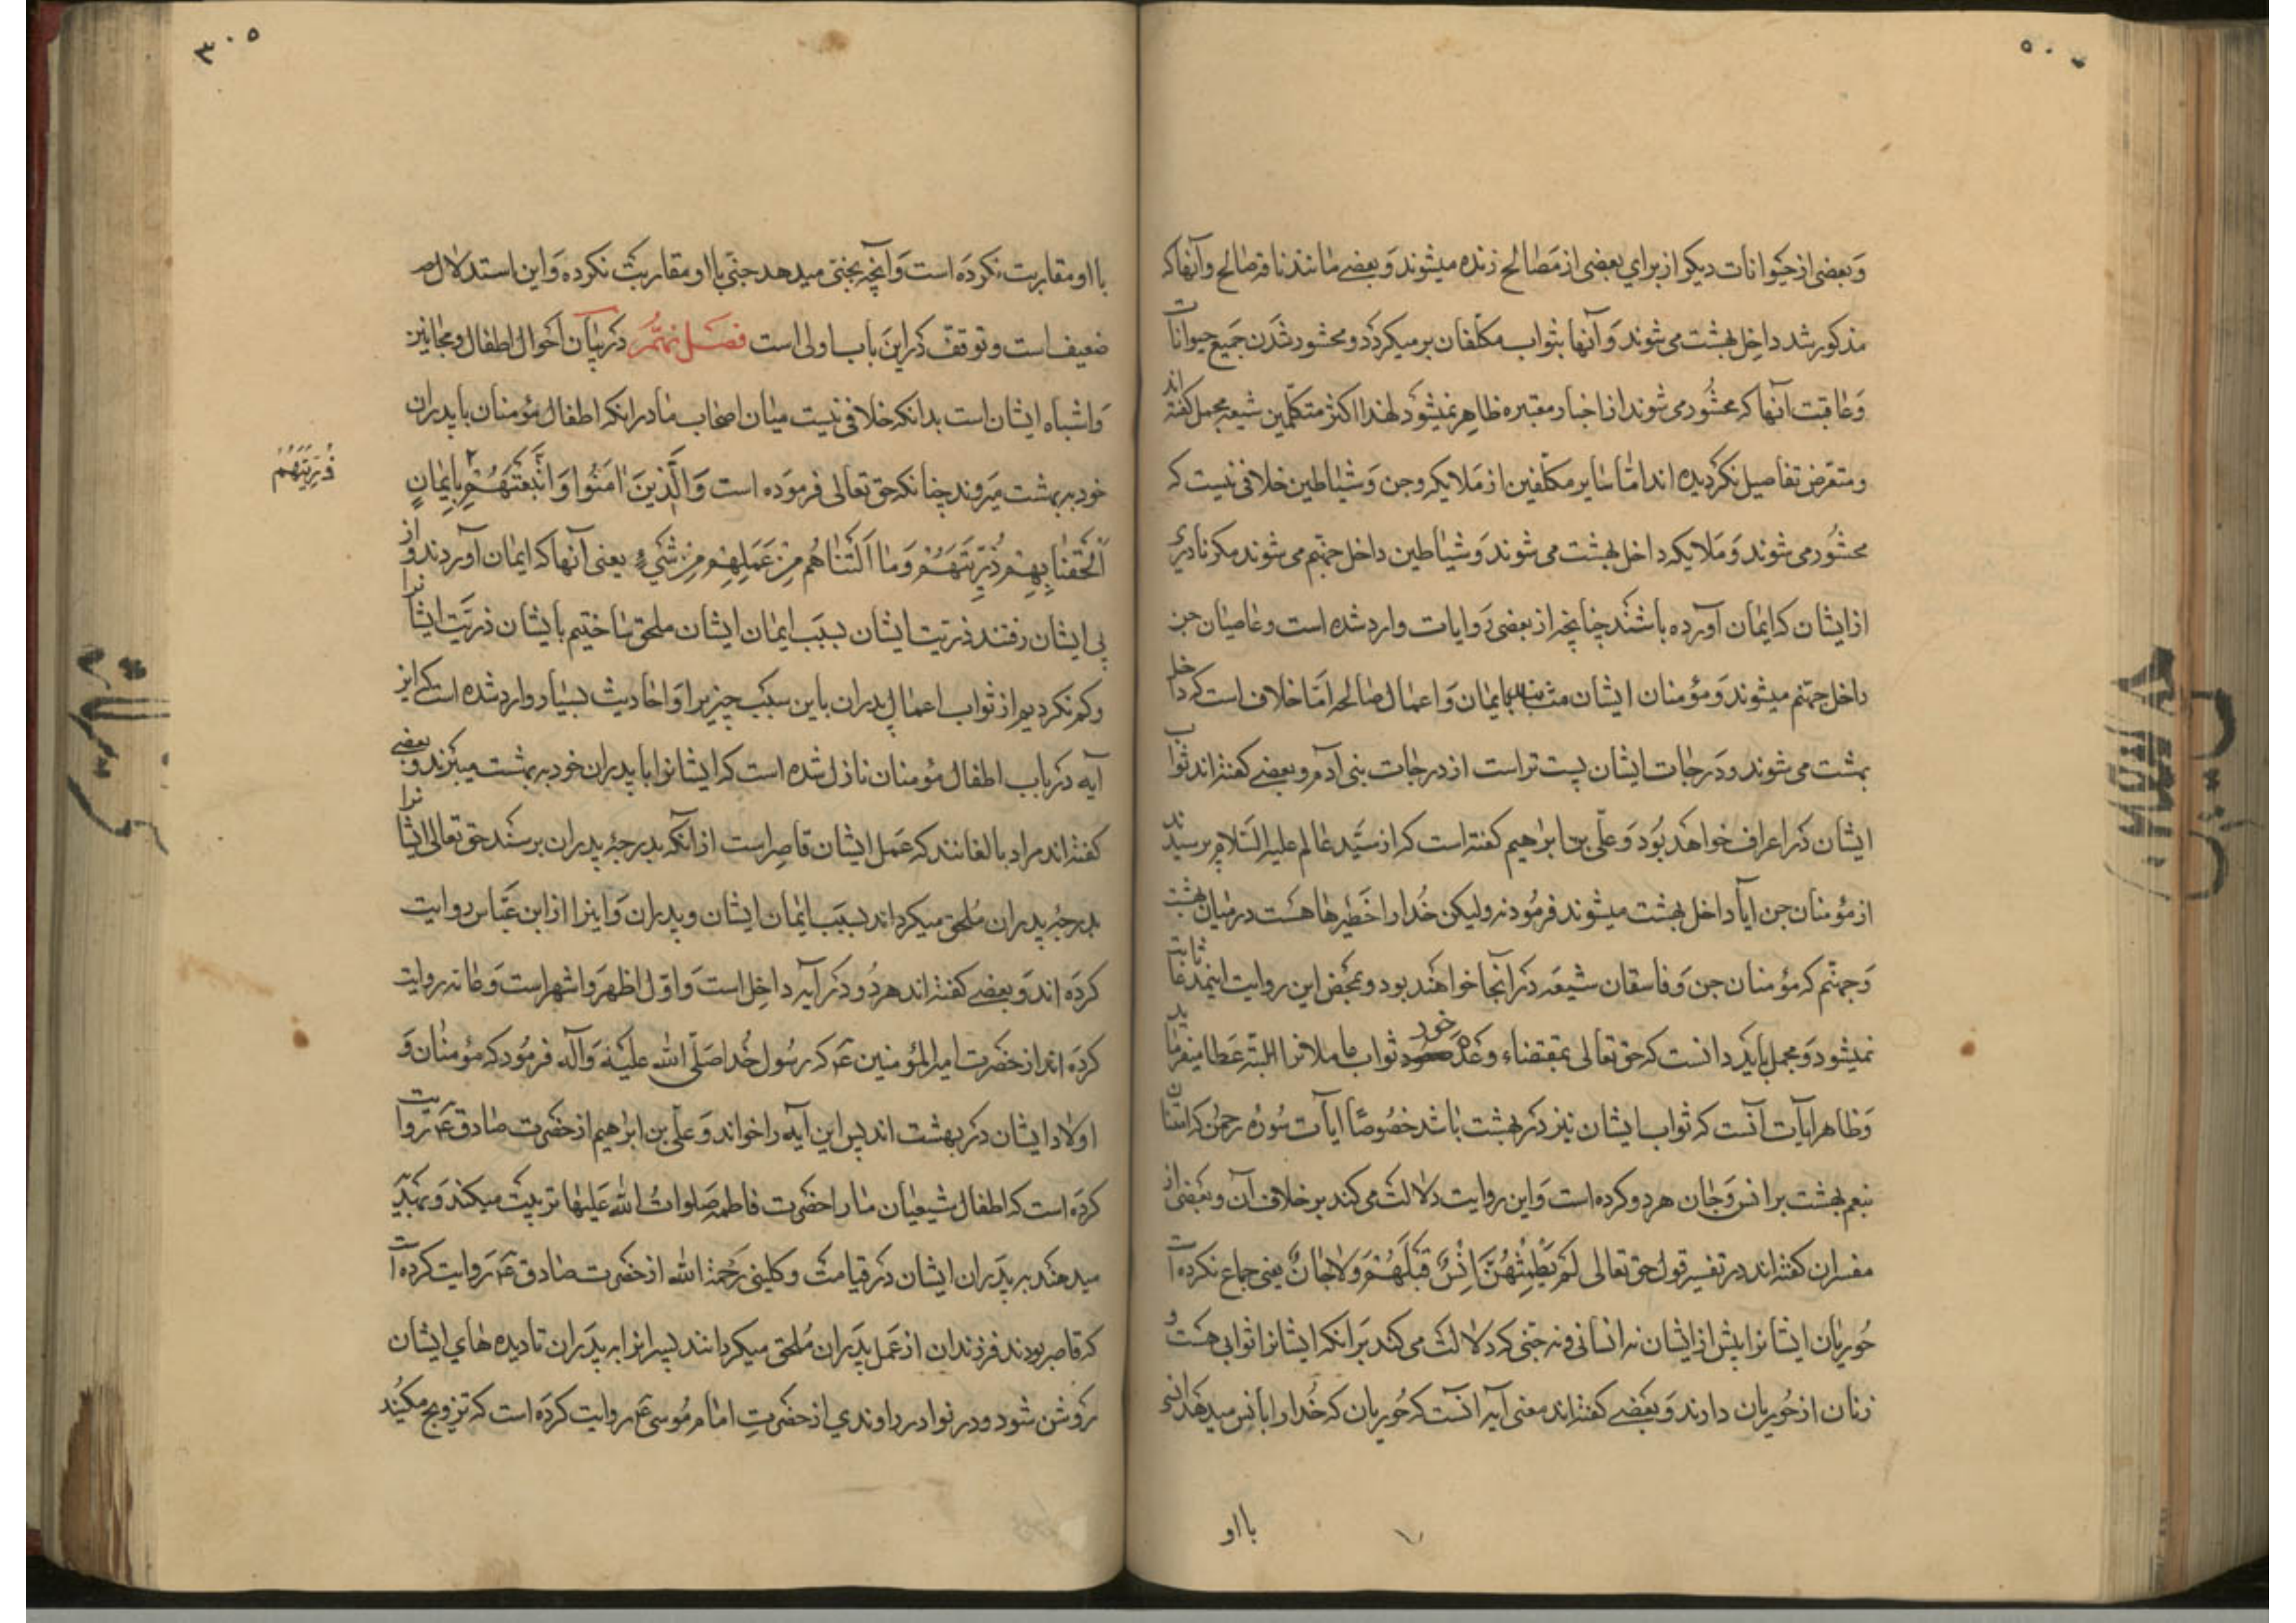 وبعضی از حیوانات دیگر از برای بعضی از مصالح زنده میشوند و بعضے مانند ناقه صالح و آنها که
مذکور شد داخل بهشت می شوند و آنها بثواب مکلفان بر میکردد و محشور شدن جمیع حیوانات
و عاقبت آنها که محشور می شوند از اخبار معتبره ظاهر نمیشود لهذا اکثر متکلمین شیعه مجمل کفته اند
و متعرض تفاصیل نکردیده اند اما سایر مکلفین از ملایکه و جن و شیاطین خلافی نیست که
محشور می شوند و ملایکه داخل بهشت می شوند و شیاطین داخل جهنم می شوند مکر نادری
از ایشان که ایمان آورده باشند چنانچه از بعضی روایات وارد شده است و عاصیان جن
داخل جهنم میشوند و مؤمنان ایشان مثابند بایمان و اعمال صالحه اما خلاف است که داخل
بهشت می شوند و درجات ایشان پست تر است از درجات بنی آدم و بعضے کفته اند ثواب
ایشان در اعراف خواهد بود و علی بن ابراهیم کفته است که از سید عالم علیه السلام پرسیدند
از مؤمنان جن آیا داخل بهشت میشوند فرمود نه ولیکن خدا را خطیرها هست در میان بهشت
و جهنم که مؤمنان جن و فاسقان شیعه در آنجا خواهند بود و بمحض این روایت اینمدعا ثابت
نمیشود و مجمل باید دانست که حق تعالی بمقتضاء وعده خود ثواب عاملانرا البته عطا میفرماید
و ظاهر آیات آنست که ثواب ایشان نیز در بهشت باشد خصوصاً آیات سوره رحمن که امتنان
بنعم بهشت بر انس و جان هر دو کرده است و این روایت دلالت می کند بر خلاف آن و بعضی از
مفسران کفته اند در تفسیر قول حق تعالی لَمْ یَطْمِثْهُنَّ اِنْسٌ قَبْلَهُمْ وَلَا جَانٌّ یعنی جماع نکرده است
حوریان ایشانرا پیش از ایشان نه انسانی و نه جنی که دلالت می کند بر انکه ایشانرا ثوابی هست و
زنان از حوریان دارند و بعضے کفته اند معنی آیه آنست که حوریان که خدا را بانس میدهد انسی
با او
۳۰۵
با او مقاربت نکرده است و آنچه بجنی میدهد جنی با او مقاربت نکرده و این استدلال
ضعیف است و توقف در این باب اولی است فصل نهم در بیان احوال اطفال و مجانین
و اشباه ایشان است بدانکه خلافی نیست میان اصحاب ما در انکه اطفال مؤمنان با پدران
خود به بهشت میروند چنانکه حق تعالی فرموده است وَالَّذینَ اٰمَنُوا وَاتَّبَعَتْهُمْ بِایمَانٍ
ذُرِّیَّتُهُمْ
اَلْحَقْنَا بِهِمْ ذُرِّیَّتَهُمْ وَمَا اَلَتْنَاهُمْ مِنْ عَمَلِهِمْ مِنْ شَیْءٍ یعنی آنها که ایمان آوردند و از
پی ایشان رفتند ذریت ایشان بسبب ایمان ایشان ملحق ساختیم بایشان ذریت ایشانرا
و کم نکردیم از ثواب اعمال پدران باین سبب چیزیرا و احادیث بسیار وارد شده است که این
آیه در باب اطفال مؤمنان نازل شده است که ایشانرا با پدران خود به بهشت میبرند و بعضے
کفته اند مراد بالغانند که عمل ایشان قاصر است از آنکه بدرجه پدران برسند حق تعالی ایشانرا
بدرجه پدران ملحق میکرداند بسبب ایمان ایشان و پدران و اینرا از ابن عباس روایت
کرده اند و بعضے کفته اند هر دو در آیه داخل است و اول اظهر و اشهر است و عامه روایت
کرده اند از حضرت امیر المؤمنین ع که رسول خدا صلی الله علیه و آله فرمود که مؤمنان و
اولاد ایشان در بهشت اند پس این آیه را خواند و علی بن ابراهیم از حضرت صادق ع روایت
کرده است که اطفال شیعیان ما را حضرت فاطمه صلوات الله علیها تربیت میکند و بهدیه
میدهند به پدران ایشان در قیامت و کلینی رحمة الله از حضرت صادق ع روایت کرده است
که قاصر بودند فرزندان از عمل پدران ملحق میکردانند پسرانرا به پدران تا دیده های ایشان
روشن شود و در نوادر راوندی از حضرتِ امام موسی ع روایت کرده است که تزویج مکنید